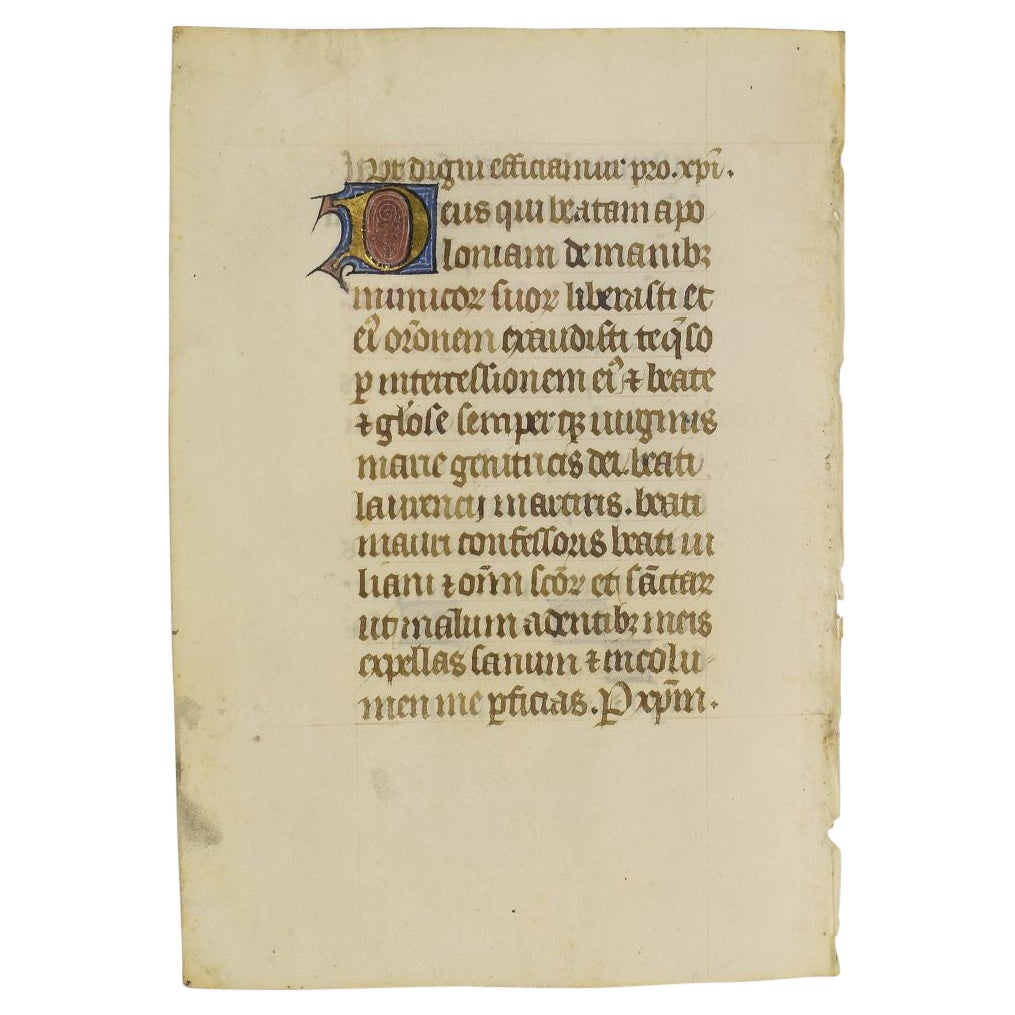 Ut digni efficiamur pro. xp̄i.
Deus qui beatam apo
loniam de manibꝫ
inimicoꝝ suoꝝ liberasti et
ei᷒ or̄onem exaudisti te q̄so
ꝑ intercessionem ei᷒ ⁊ beate
⁊ gl'ose semper qꝫ uirginis
marie genitricis dei. beati
laurencij martiris. beati
mauri confessoris beati iu
liani ⁊ om̄i sc̄oꝝ et sāctaꝝ
ut malum a dentibꝫ meis
expellas sanum ⁊ incolu-
men me ꝑficias. P xp̄m.